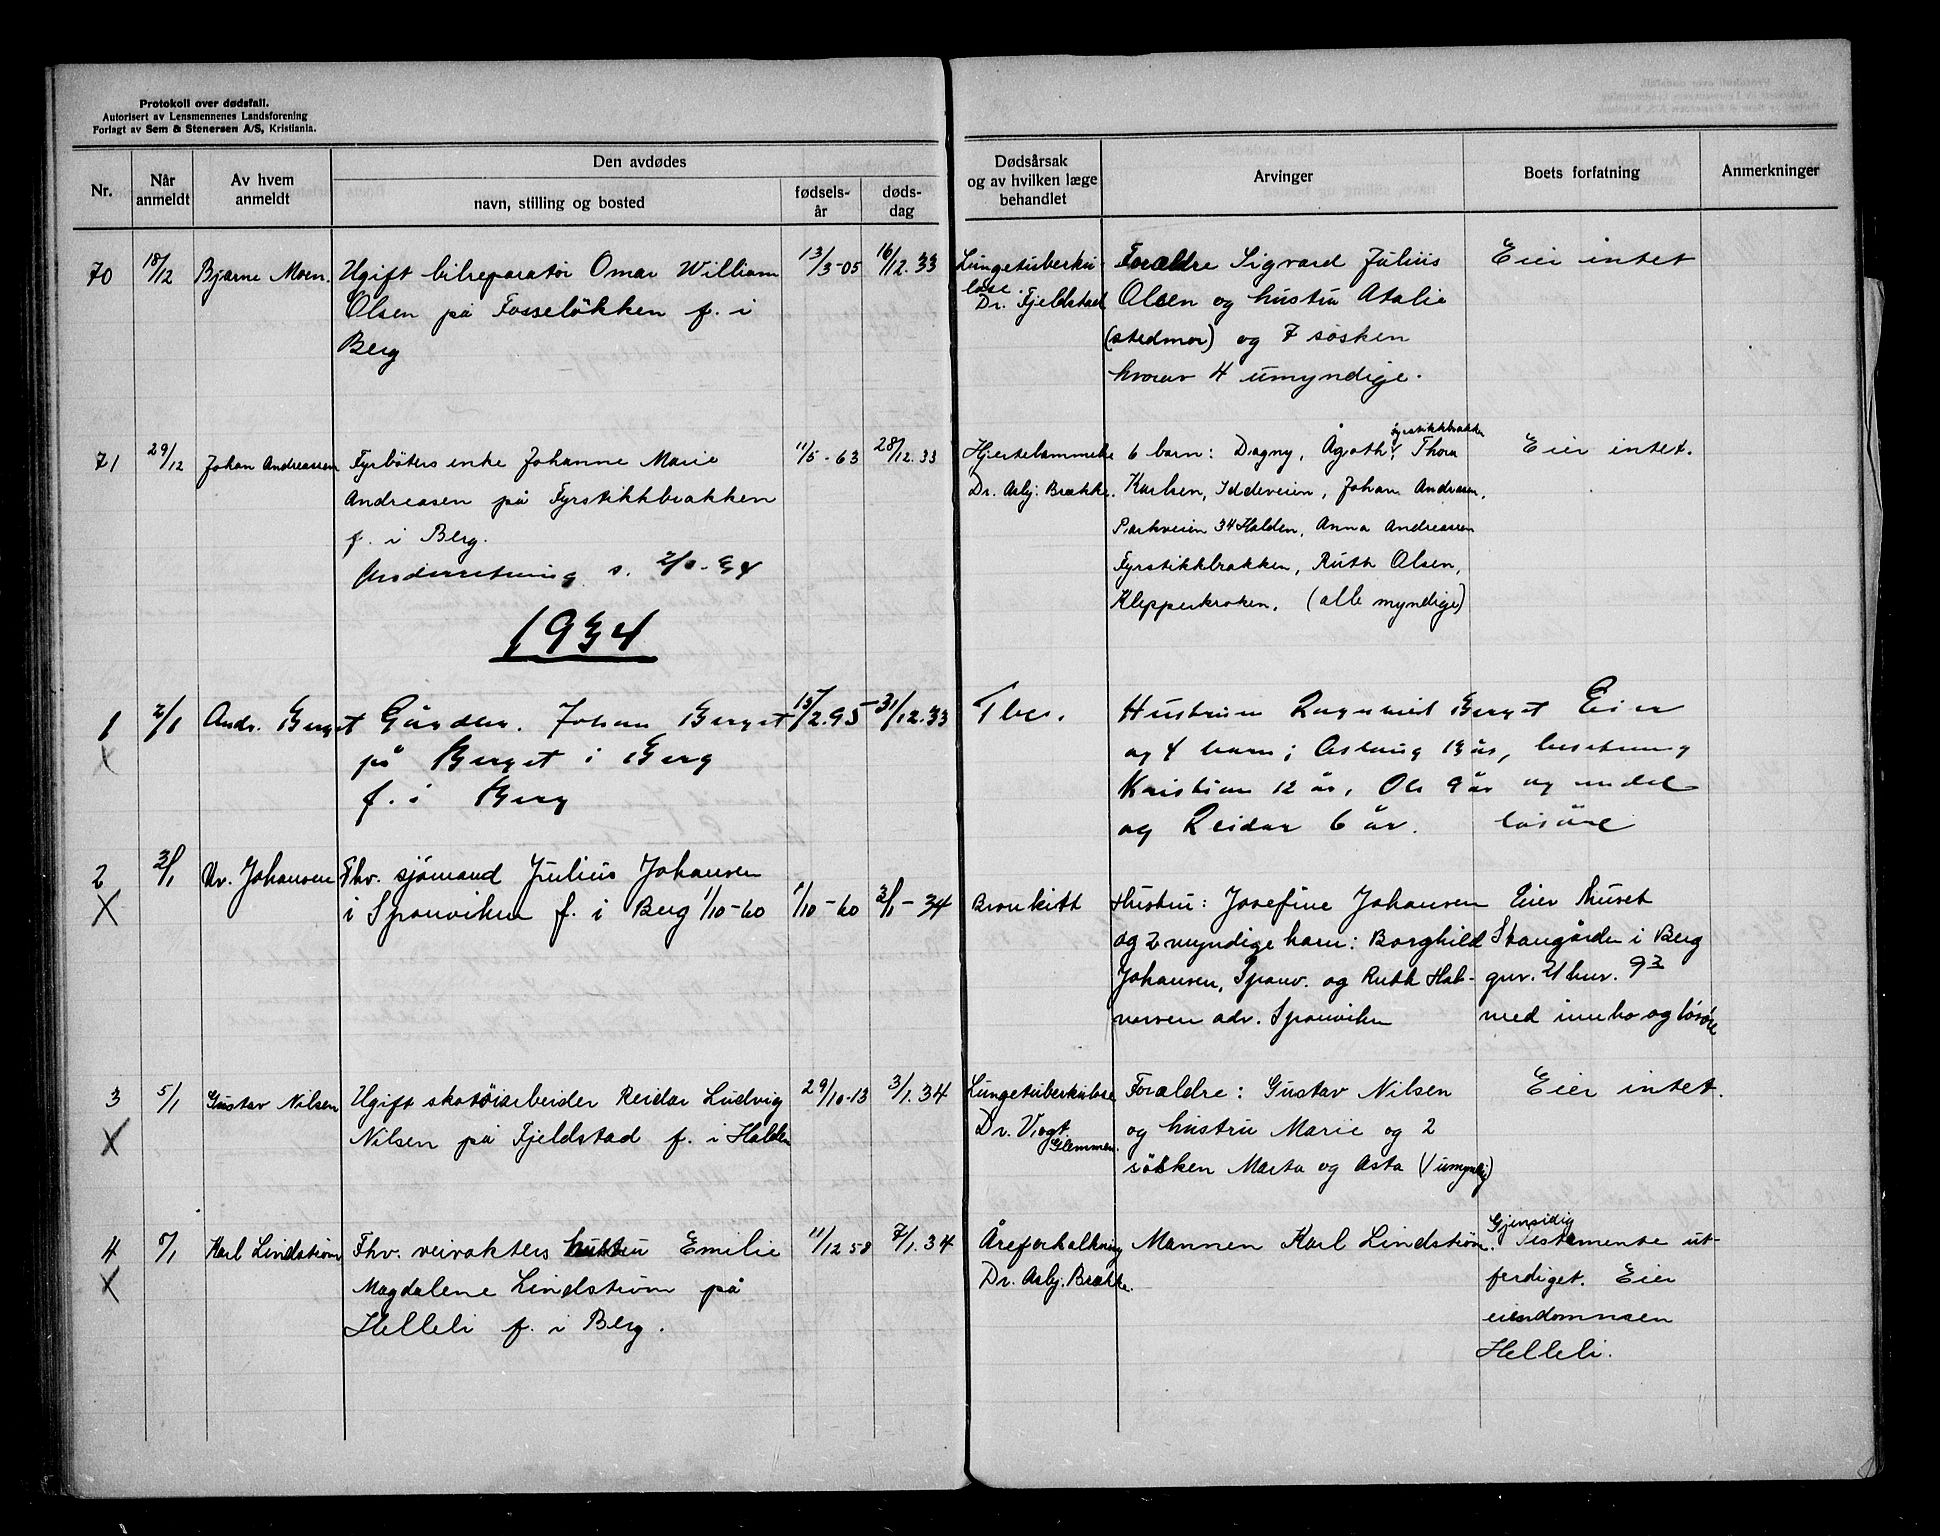 Protokoll over dødsfall.
Autorisert av Lensmennenes Landsforening
Forlagt av Sem & Stenersen A/S, Kristiania.
Nr.
Når anmeldt
Av hvem anmeldt
Den avdødes
navn, stilling og bosted
fødsels-år
døds-dag
Dødsårsak og av hvilken læge behandlet
Arvinger
Boets forfatning
Anmerkninger
70
18/12
Bjarne Moen.
Ugift bilreparatør Omar William
Olsen på Fosseløkken f. i
Berg
13/3-05
16/12.33
Lungetuberku-
lose.
Dr. Fjeldstad
Forældre Sigvard Julius
Olsen og hustru Atalie
(stedmor) og 7 søsken
hvorav 4 umyndige.
Eier intet
71
29/12
Johan Andreassen
Fyrbøters enke Johanne Marie
Andreasen på Fyrstikkbrakken
f. i Berg.
Underretning s. 2/1-34
11/5-63
28/12.33
Hjertelammelse
Dr. Asbj. Brække.
fyrstikkbrakken
6 barn: Dagny, Ågoth, Thora
Karlsen, Iddeveien, Johan Andreasen,
Parkveien 34 Halden, Anna Andreassen
Fyrstikkbrakken, Ruth Olsen,
Klepperkroken. (alle myndige)
Eier intet.
1934
1
x
2/1
Andr. Berget
Gårdbr. Johan Berget
på Berget i Berg
f. i Berg
15/2.95
31/12.33
Tbc.
Hustrun Ragnhild Berget
og 4 barn; Aslaug 13 år,
Kristian 12 år, Ole 9 år
og Reidar 6 år.
Eier
besetning
og endel
løsøre
2
x
3/1
Kr. Johansen
Fhv. sjømand Julius Johansen
i Sponviken f. i Berg 1/10-60
1/10-60
3/1-34
Bronkitt
Hustru: Josefine Johansen
og 2 myndige barn: Borghild
Johansen, Sponv. og Ruth Hal-
vorsen adr. Sponviken
Eier huset
Skaugården i Berg
gnr. 21 bnr. 93
med innbo og løsøre
3
x
5/1
Gustav Nilsen
Ugift skotøiarbeider Reidar Ludvig
Nilsen på Fjeldstad f. i Halden
29/10-13
3/1.34
Lungetuberkulose
Dr. Vogt.
Glemmen.
Forældre: Gustav Nilsen
og hustru Marie og 2
søsken Marta og Asta (1 umyndig)
Eier intet.
4
x
8/1
Karl Lindstrøm
Fhv. veivokters hustru Emilie
Magdalene Lindstrøm på
Helleli f. i Berg.
11/12 58
7/1.34
Åreforkalkning
Dr. Asbj. Brække.
Mannen Karl Lindstrøm.
Gjensidig
Testamente ut-
ferdiget. Eier
eiendommen
Helleli.